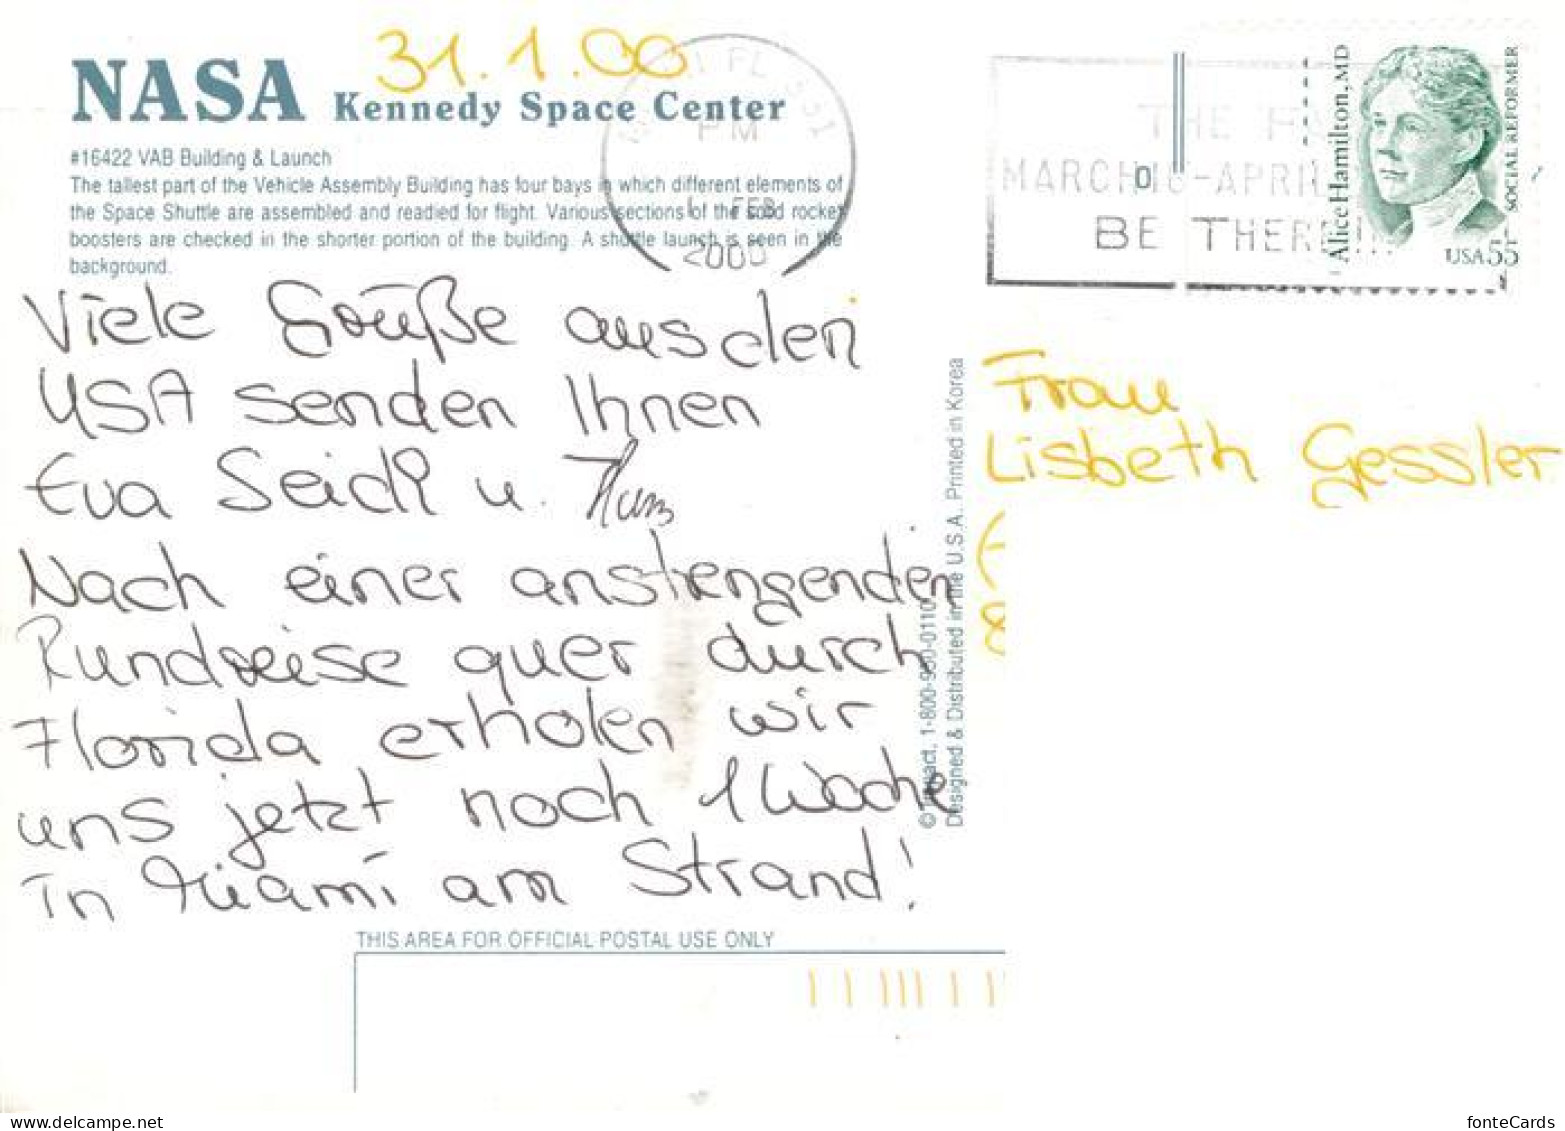 31.1.00
NASA Kennedy Space Center
#16422 VAB Building & Launch
The tallest part of the Vehicle Assembly Building has four bays in which different elements of
the Space Shuttle are assembled and readied for flight. Various sections of the solid rocket
boosters are checked in the shorter portion of the building. A shuttle launch is seen in the
background.
PM
1 FEB
2000
THE
MARCH 16-APRIL
BE THERE!!!
Alice Hamilton, MD
SOCIAL REFORMER
USA 55
Viele Grüße aus den
USA senden Ihnen
Eva Seidl u.
Nach einer anstrengenden
Rundreise quer durch
Florida erholen wir
uns jetzt noch 1 Woche
in Miami am Strand!
1-800-950-0110
Designed & Distributed in the U.S.A. Printed in Korea
Frau
Lisbeth Gessler
THIS AREA FOR OFFICIAL POSTAL USE ONLY
www.delcampe.net
fonteCards